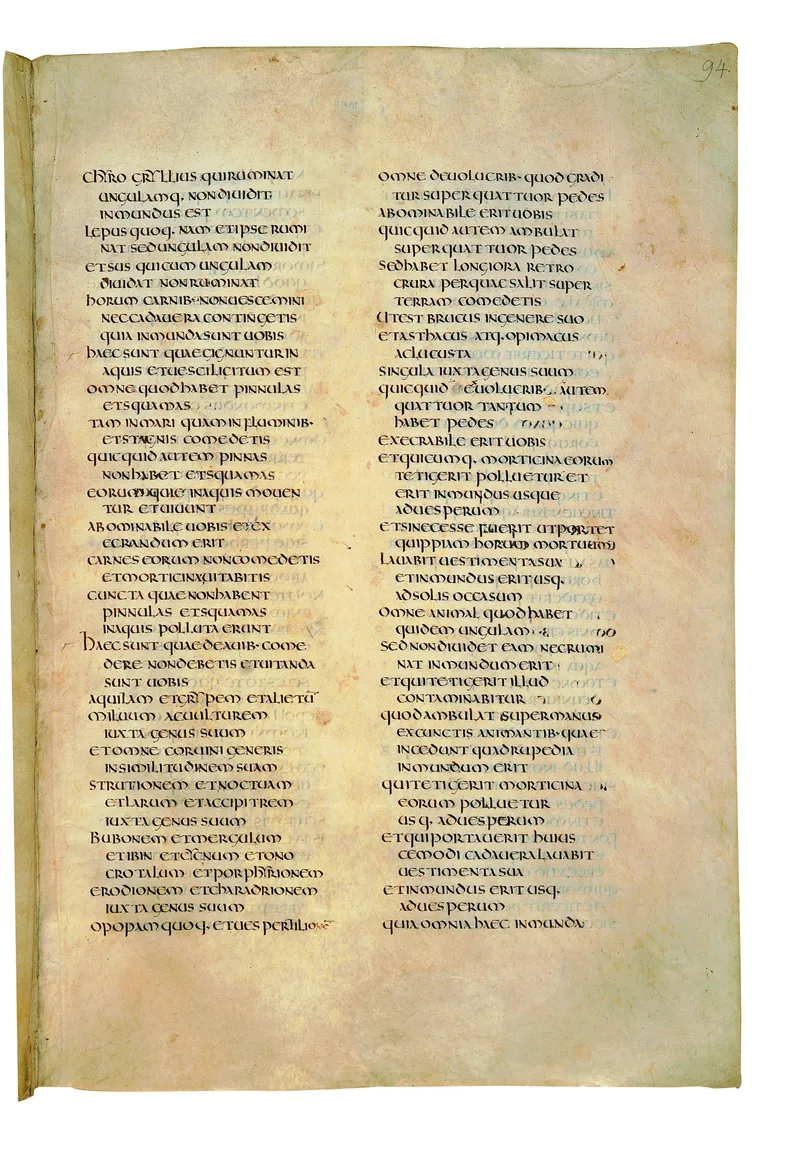 94
CHYRO GRYLLIUS QUI RUMINAT
UNGULAMQ. NON DIUIDIT
INMUNDUS EST
LEPUS QUOQ. NAM ET IPSE RUMI
NAT SED UNGULAM NON DIUIDIT
ET SUS QUI CUM UNGULAM
DIUIDAT NON RUMINAT
HORUM CARNIB· NON UESCEMINI
NEC CADAUERA CONTINGETIS
QUIA INMUNDA SUNT UOBIS
HAEC SUNT QUAE GIGNUNTUR IN
AQUIS ET UESCI LICITUM EST
OMNE QUOD HABET PINNULAS
ET SQUAMAS
TAM IN MARI QUAM IN FLUMINIB·
ET STAGNIS COMEDETIS
QUICQUID AUTEM PINNAS
NON HABET ET SQUAMAS
EORUM QUE IN AQUIS MOUEN
TUR ET UIUUNT
ABOMINABILE UOBIS ET EX
ECRANDUM ERIT
CARNES EORUM NON COMEDETIS
ET MORTICINA UITABITIS
CUNCTA QUAE NON HABENT
PINNULAS ET SQUAMAS
IN AQUIS POLLUTA ERUNT
HAEC SUNT QUAE DE AUIB· COME
DERE NON DEBETIS ET UITANDA
SUNT UOBIS
AQUILAM ET GRYPEM ET ALIETU̅
MILUUM AC UULTUREM
IUXTA GENUS SUUM
ET OMNE CORUINI GENERIS
IN SIMILITUDINEM SUAM
STRUTIONEM ET NOCTUAM
ET LARUM ET ACCIPITREM
IUXTA GENUS SUUM
BUBONEM ET MERGULUM
ET IBIN ET CICNUM ET ONO
CROTALUM ET PORPHYRIONEM
ERODIONEM ET CHARADRIONEM
IUXTA GENUS SUUM
OPOPAM QUOQ. ET UESPERTILIONE̅
OMNE DE UOLUCRIB· QUOD GRADI
TUR SUPER QUATTUOR PEDES
ABOMINABILE ERIT UOBIS
QUICQUID AUTEM AMBULAT
SUPER QUATTUOR PEDES
SED HABET LONGIORA RETRO
CRURA PER QUAE SALIT SUPER
TERRAM COMEDETIS
UT EST BRUCUS IN GENERE SUO
ET ASTHACUS ATQ. OPIMACUS
AC LUCUSTA
SINGULA IUXTA GENUS SUUM
QUICQUID EUOLUCRIB· AUTEM
QUATTUOR TANTUM
HABET PEDES
EXECRABILE ERIT UOBIS
ET QUICUMQ. MORTICINA EORUM
TETIGERIT POLLUETUR ET
ERIT INMUNDUS USQUE
AD UESPERUM
ET SI NECESSE FUERIT UT PORTET
QUIPPIAM HORUM MORTUUM
LAUABIT UESTIMENTA SUA
ET INMUNDUS ERIT USQ.
AD SOLIS OCCASUM
OMNE ANIMAL QUOD HABET
QUIDEM UNGULAM
SED NON DIUIDET EAM NEC RUMI
NAT INMUNDUM ERIT
ET QUI TETIGERIT ILLUD
CONTAMINABITUR
QUOD AMBULAT SUPER MANUS
EX CUNCTIS ANIMANTIB· QUAE
INCEDUNT QUADRUPEDIA
INMUNDUM ERIT
QUI TETIGERIT MORTICINA
EORUM POLLUETUR
USQ. AD UESPERUM
ET QUI PORTAUERIT HUIUS
CEMODI CADAUERA LAUABIT
UESTIMENTA SUA
ET INMUNDUS ERIT USQ.
AD UESPERUM
QUIA OMNIA HAEC INMUNDA